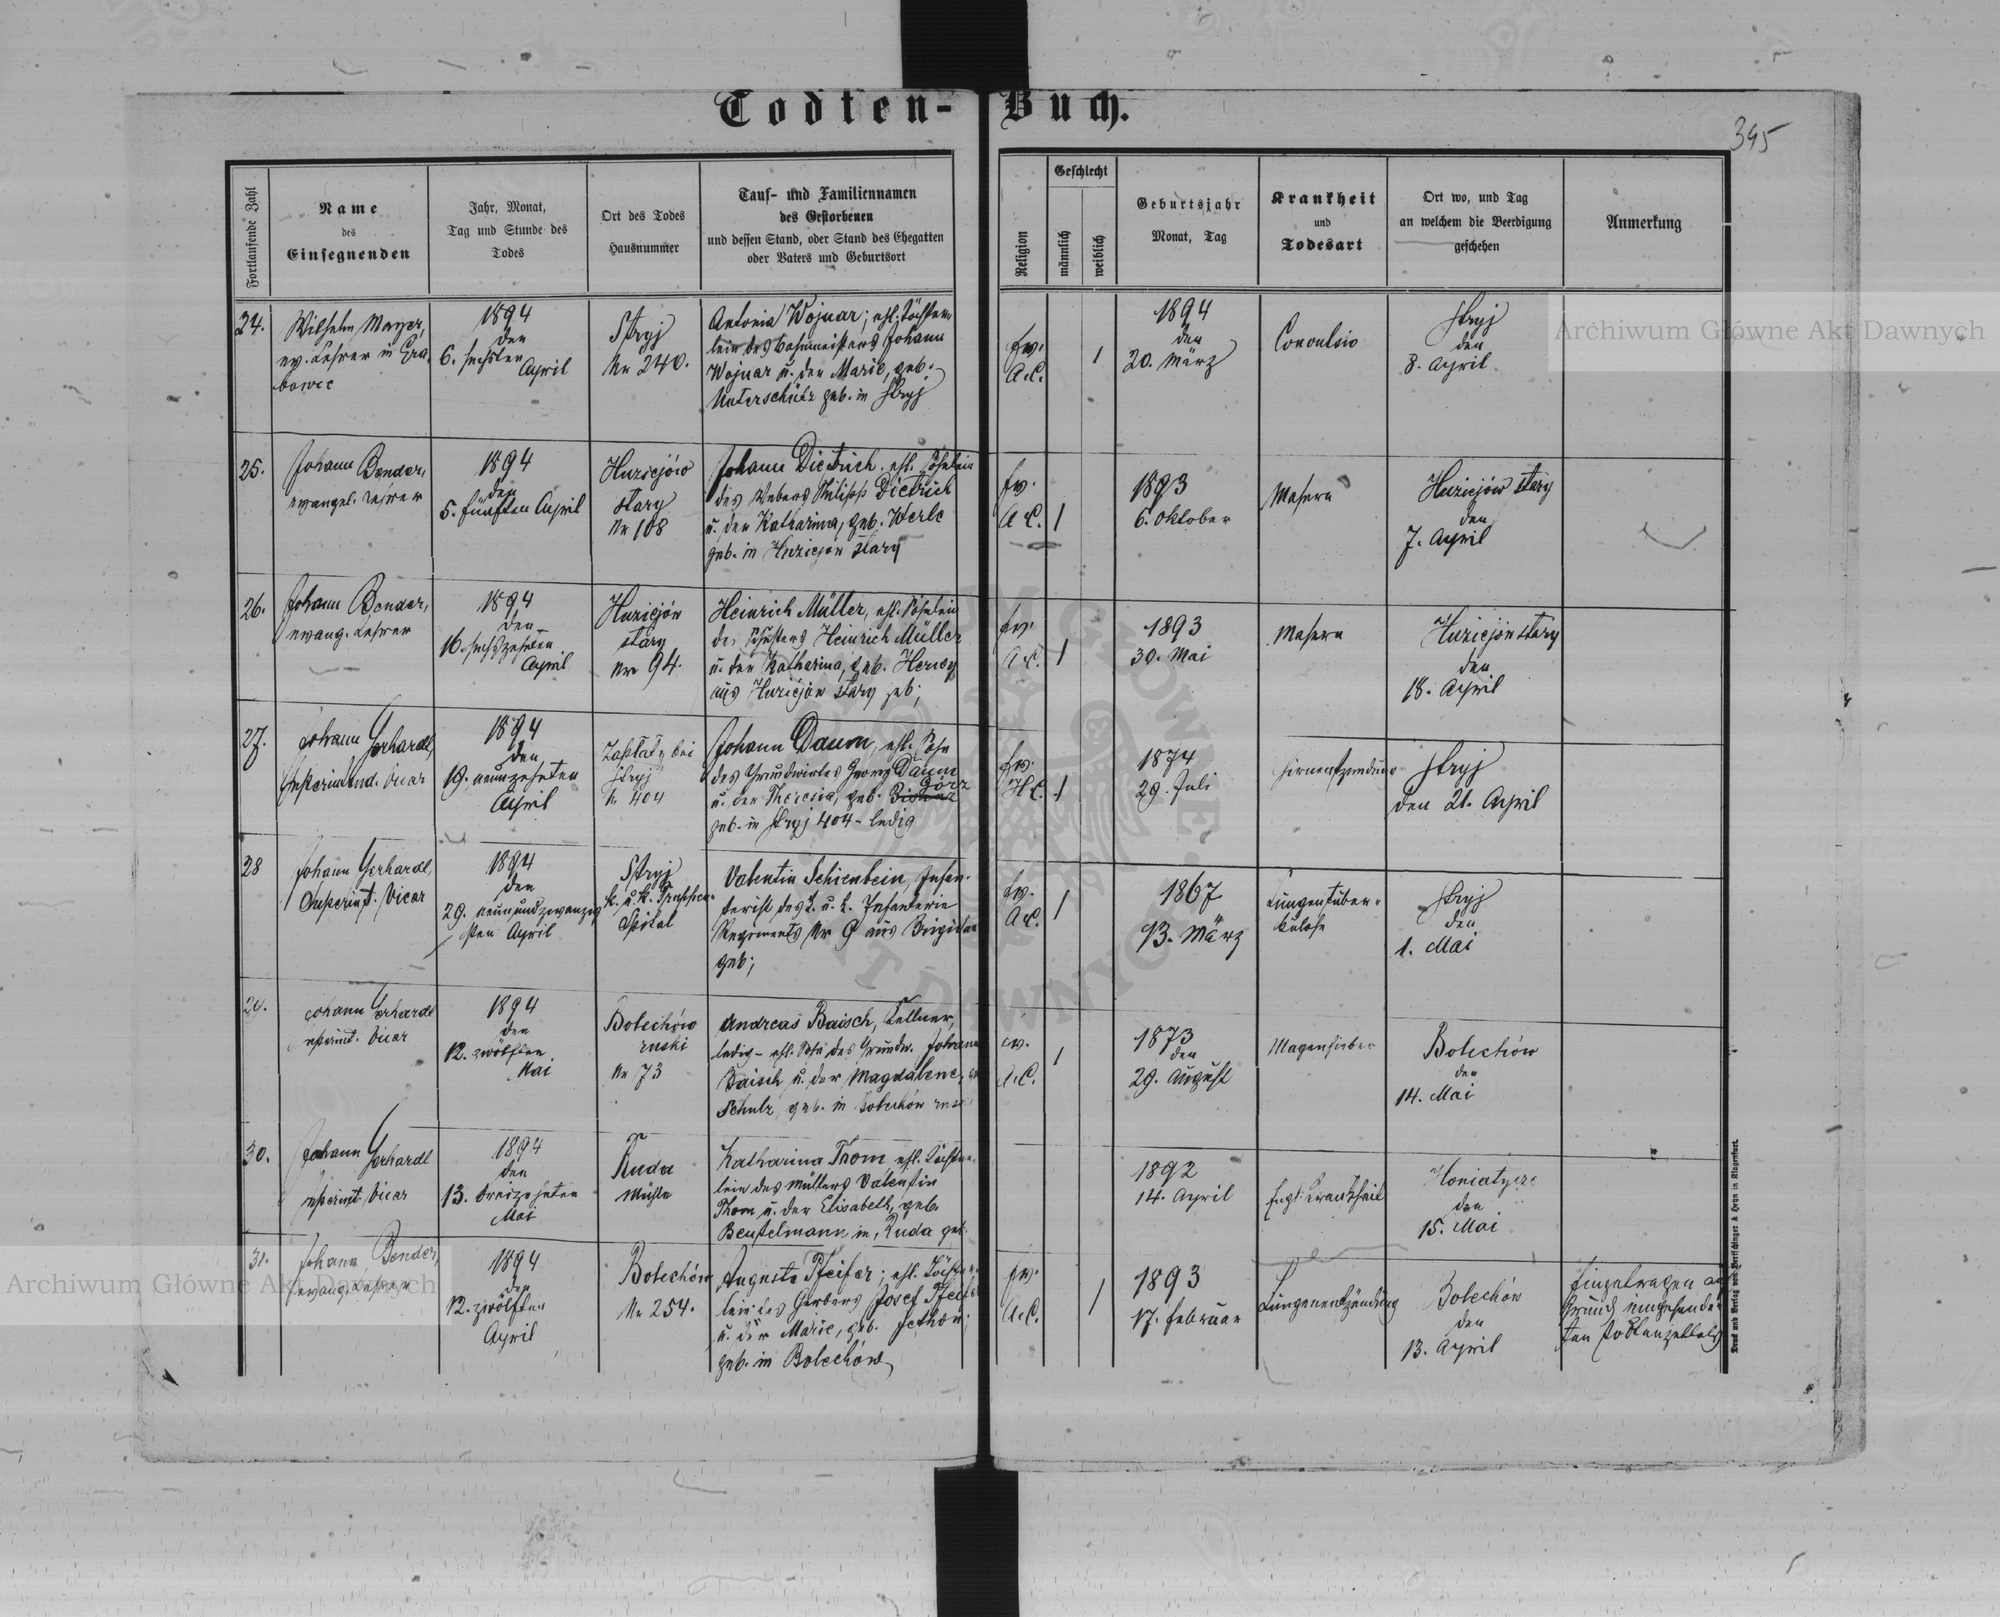 Todten-Buch.
395
Fortlaufende Zahl
Name
des
Einsegnenden
Jahr, Monat,
Tag und Stunde des
Todes
Ort des Todes
Hausnummer
Tauf- und Familiennamen
des Gestorbenen
und dessen Stand, oder Stand des Ehegatten
oder Vaters und Geburtsort
Religion
Geschlecht
männlich
weiblich
Geburtsjahr
Monat, Tag
Krankheit
und
Todesart
Ort wo, und Tag
an welchem die Beerdigung
geschehen
Anmerkung
24.
Wilhelm Mayer,
ev. Lehrer in Gra-
bowce
1894
den
6. sechsten
April
Stryj
Nr 240.
Antonia Wojnar; ehl. Töchter-
lein des Bahnmeisters Johann
Wojnar u. der Marie, geb.
Unterschütz geb. in Stryj
Ev.
A.C.
1
1894
den
20. März
Convulsio
Stryj
den
8. April
25.
Johann Bender,
evangel. Lehrer
1894
den
5. fünften April
Huziejów
stary
Nr 108
Johann Dietrich, ehl. Söhnlein
des Webers Philipp Dietrich
u. der Katharina, geb. Werle
geb. in Huziejów stary
Ev.
A.C.
1
1893
6. Oktober
Masern
Huziejów stary
den
7. April
26.
Johann Bender,
evang. Lehrer
1894
den
16. sechszehnten
April
Huziejów
stary
Nro 94.
Heinrich Müller, ehl. Söhnlein
des Schusters Heinrich Müller
u. der Katharina, geb. Herwy
aus Huziejów stary geb;
Ev.
A.C.
1
1893
30. Mai
Masern
Huziejów stary
den
18. April
27.
Johann Gerhardt,
Superintend. Vicar
1894
den
19. neunzehnten
April
Zaplatyn bei
Stryj
Nr 404
Johann Daum, ehl. Sohn
des Grundwirtes Georg Daum
Görz
u. der Theresia, geb.
geb. in Stryj 404 - ledig
Ev.
H.C.
1
1874
29. Juli
Hirnentzündung
Stryj
den 21. April
28
Johann Gerhardt,
Superint. Vicar
1894
den
29. neunundzwanzig
sten April
Stryj
k. u. k. Truppen-
Spital
Valentin Schienbein, Infan-
terist des k. u. k. Infanterie
Regiments Nr 9 aus Brigidau
geb;
Ev.
A.C.
1
1867
13. März
Lungentuber-
kulose
Stryj
den
1. Mai
29.
Johann Gerhardt
Superint. Vicar
1894
den
12. zwölften
Mai
Bolechów
ruski
Nr 73
Andreas Baisch, Kellner,
ledig - ehl. Sohn des Grundw. Johann
Baisch u. der Magdalene,
Schulz, geb. in Bolechów rusk
Ev.
A.C.
1
1873
den
29. August
Magenfieber
Bolechów
den
14. Mai
30.
Johann Gerhardt
Superint. Vicar
1894
den
13. dreizehnten
Mai
Ruda
Mühle
Katharina Thom ehl. Töchter-
lein des Müllers Valentin
Thom u. der Elisabeth, geb.
Beutelmann in Ruda geb.
1892
14. April
Engl. Krankheit
Honiatycze
den
15. Mai
31.
Johann Bender,
evang. Lehrer
1894
den
12. zwölften
April
Bolechów
Nr 254.
Auguste Pfeifer; ehl. Töchter-
lein des Gerbers Josef Pfeifer
u. der Marie, geb. Jethon;
geb. in Bolechów
Ev.
A.C.
1
1893
17. Februar
Lungenentzündung
Bolechów
den
13. April
Eingetragen auf
Grund eingesende-
ten Todtenzettels
Druck und Verlag von Bertschinger & Heyn in Klagenfurt.
Archiwum Główne Akt Dawnych
Archiwum Główne Akt Dawnych